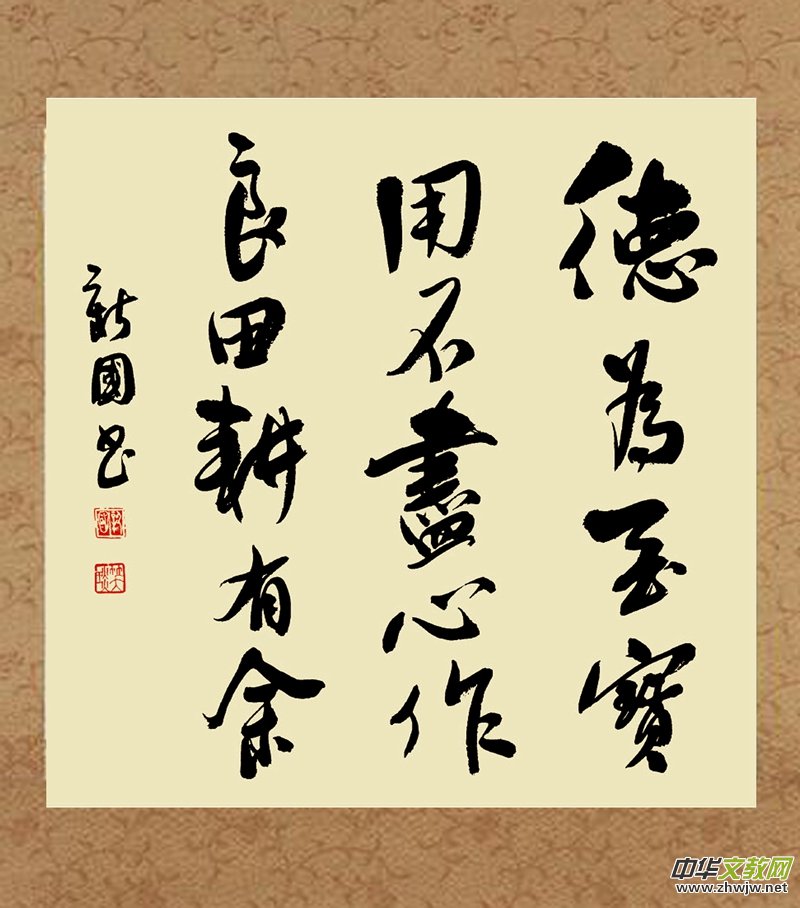 德為至寶
用不盡心作
良田耕有余
新國書
中华文教网
www.zhwjw.net